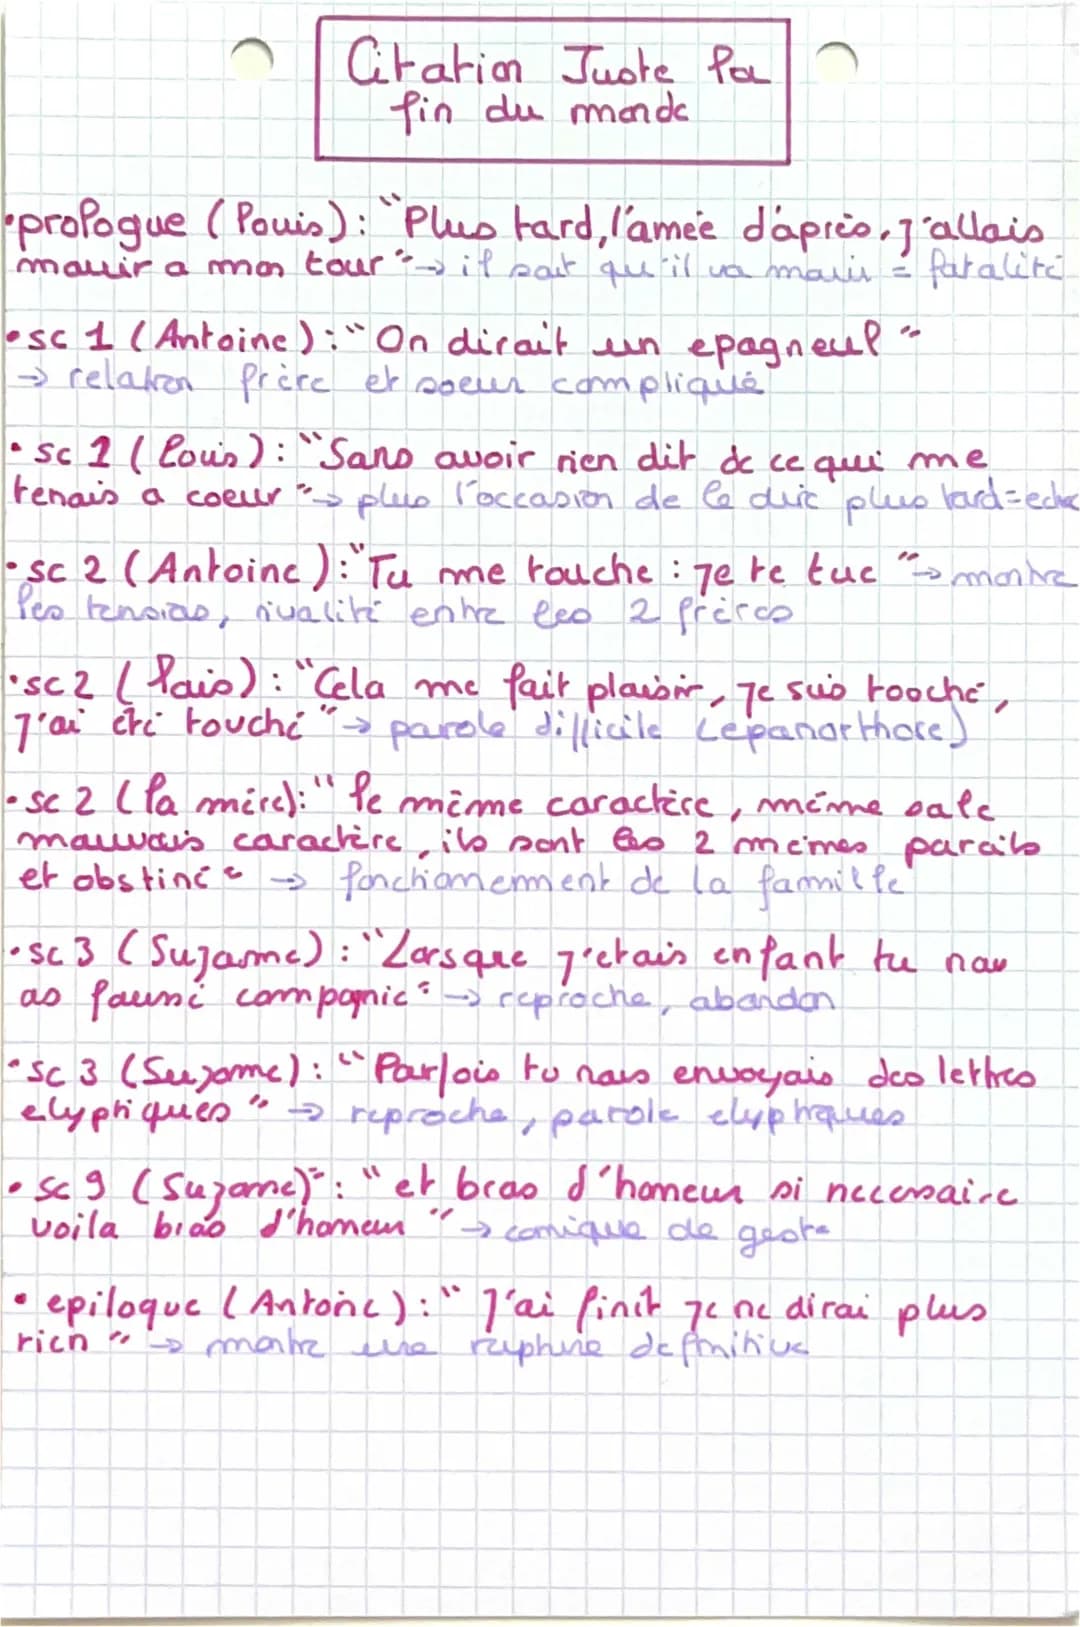 Citation Juste la
fin du monde
•prologue (Louis): "Plus tard, l'année d'après, j'allais
mourir a mon tour" → il sait qu'il va mourir = fatalité
•sc 1 (Antoine): "On dirait un epagneul"
→ relation frère et soeur compliqué
•sc 1 (Louis): "Sans avoir rien dit de ce qui me
tenais a coeur" → plus l'occasion de le dire plus tard = echec
•sc 2 (Antoine): "Tu me touche : je te tue" → montre
les tensions, rivalité entre les 2 frères
•sc 2 (Louis): "Cela me fait plaisir, je suis touché,
j'ai été touché" → parole difficile (epanorthose)
•sc 2 (la mère): "le même caractère, même sale
mauvais caractère, ils sont les 2 mêmes pareils
et obstiné" → fonctionnement de la famille
•sc 3 (Suzanne): "Lorsque j'etais enfant tu nous
as faussé compagnie" → reproche, abandon
•sc 3 (Suzanne): "Parfois tu nous envoyais des lettres
elyptiques" → reproche, parole elyptiques
•sc 9 (Suzanne): "et bras d'honneur si necessaire
voila bras d'honneur" → comique de geste
•epilogue (Antoine): "J'ai finit je ne dirai plus
rien" → montre une rupture definitive